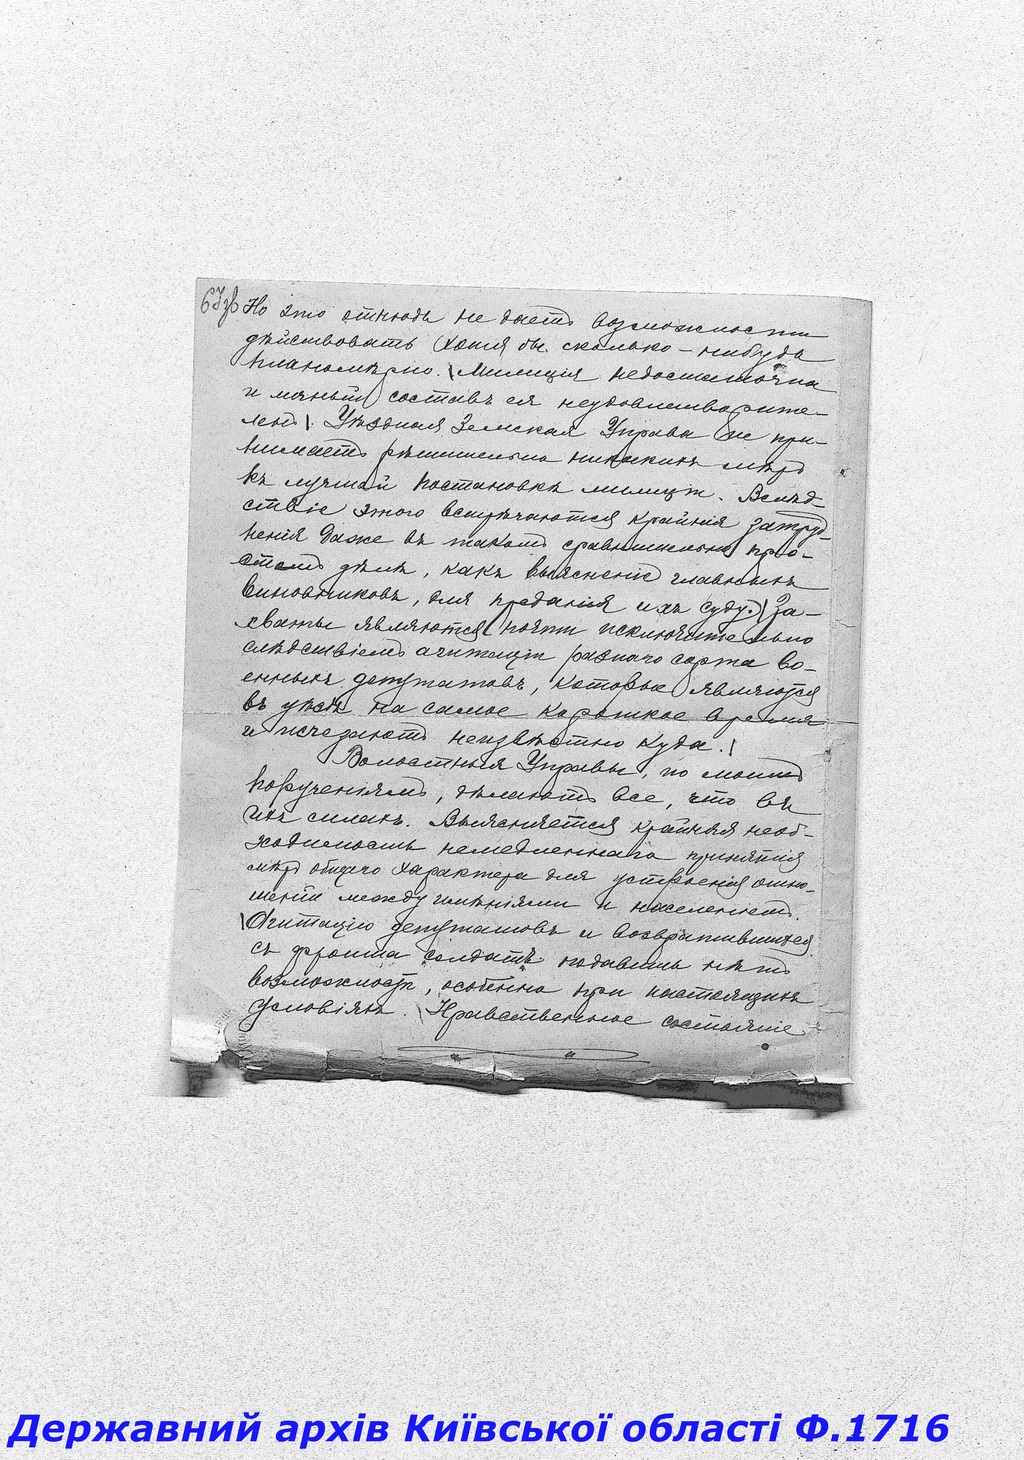 67зв
Но это отнюдь не даетъ возможности
дѣйствовать хотя бы сколько-нибудь
планомѣрно. \ Милиція недостаточна
и личный составъ ея неудовлетворите-
ленъ \. Уѣздная Земская Управа не при-
нимаетъ рѣшительно никакихъ мѣръ
къ лучшей постановкѣ милиціи. Вслѣд-
ствіе этого встрѣчаются крайнія затруд-
ненія даже въ такомъ сравнительно про-
стомъ дѣлѣ, какъ выясненіе главныхъ
виновниковъ, для преданія ихъ суду. \ За-
хваты являются почти исключительно
слѣдствіемъ агитаціи разнаго сорта во-
енныхъ депутатовъ, которые являются
въ уѣздъ на самое короткое время
и исчезаютъ неизвѣстно куда. \
Волостныя Управы, по моимъ
порученіямъ, дѣлаютъ все, что въ
ихъ силахъ. Выясняется крайняя необ-
ходимость немедленнаго принятія
мѣръ общаго характера для устроенія отно-
шеній между имѣніями и населеніемъ.
\ Агитацію депутатовъ и возвратившихся
съ фронта солдатъ подавить нѣтъ
возможности, особенно при настоящихъ
условіяхъ. \ Нравственное состояніе
Державний архів Київської області Ф.1716